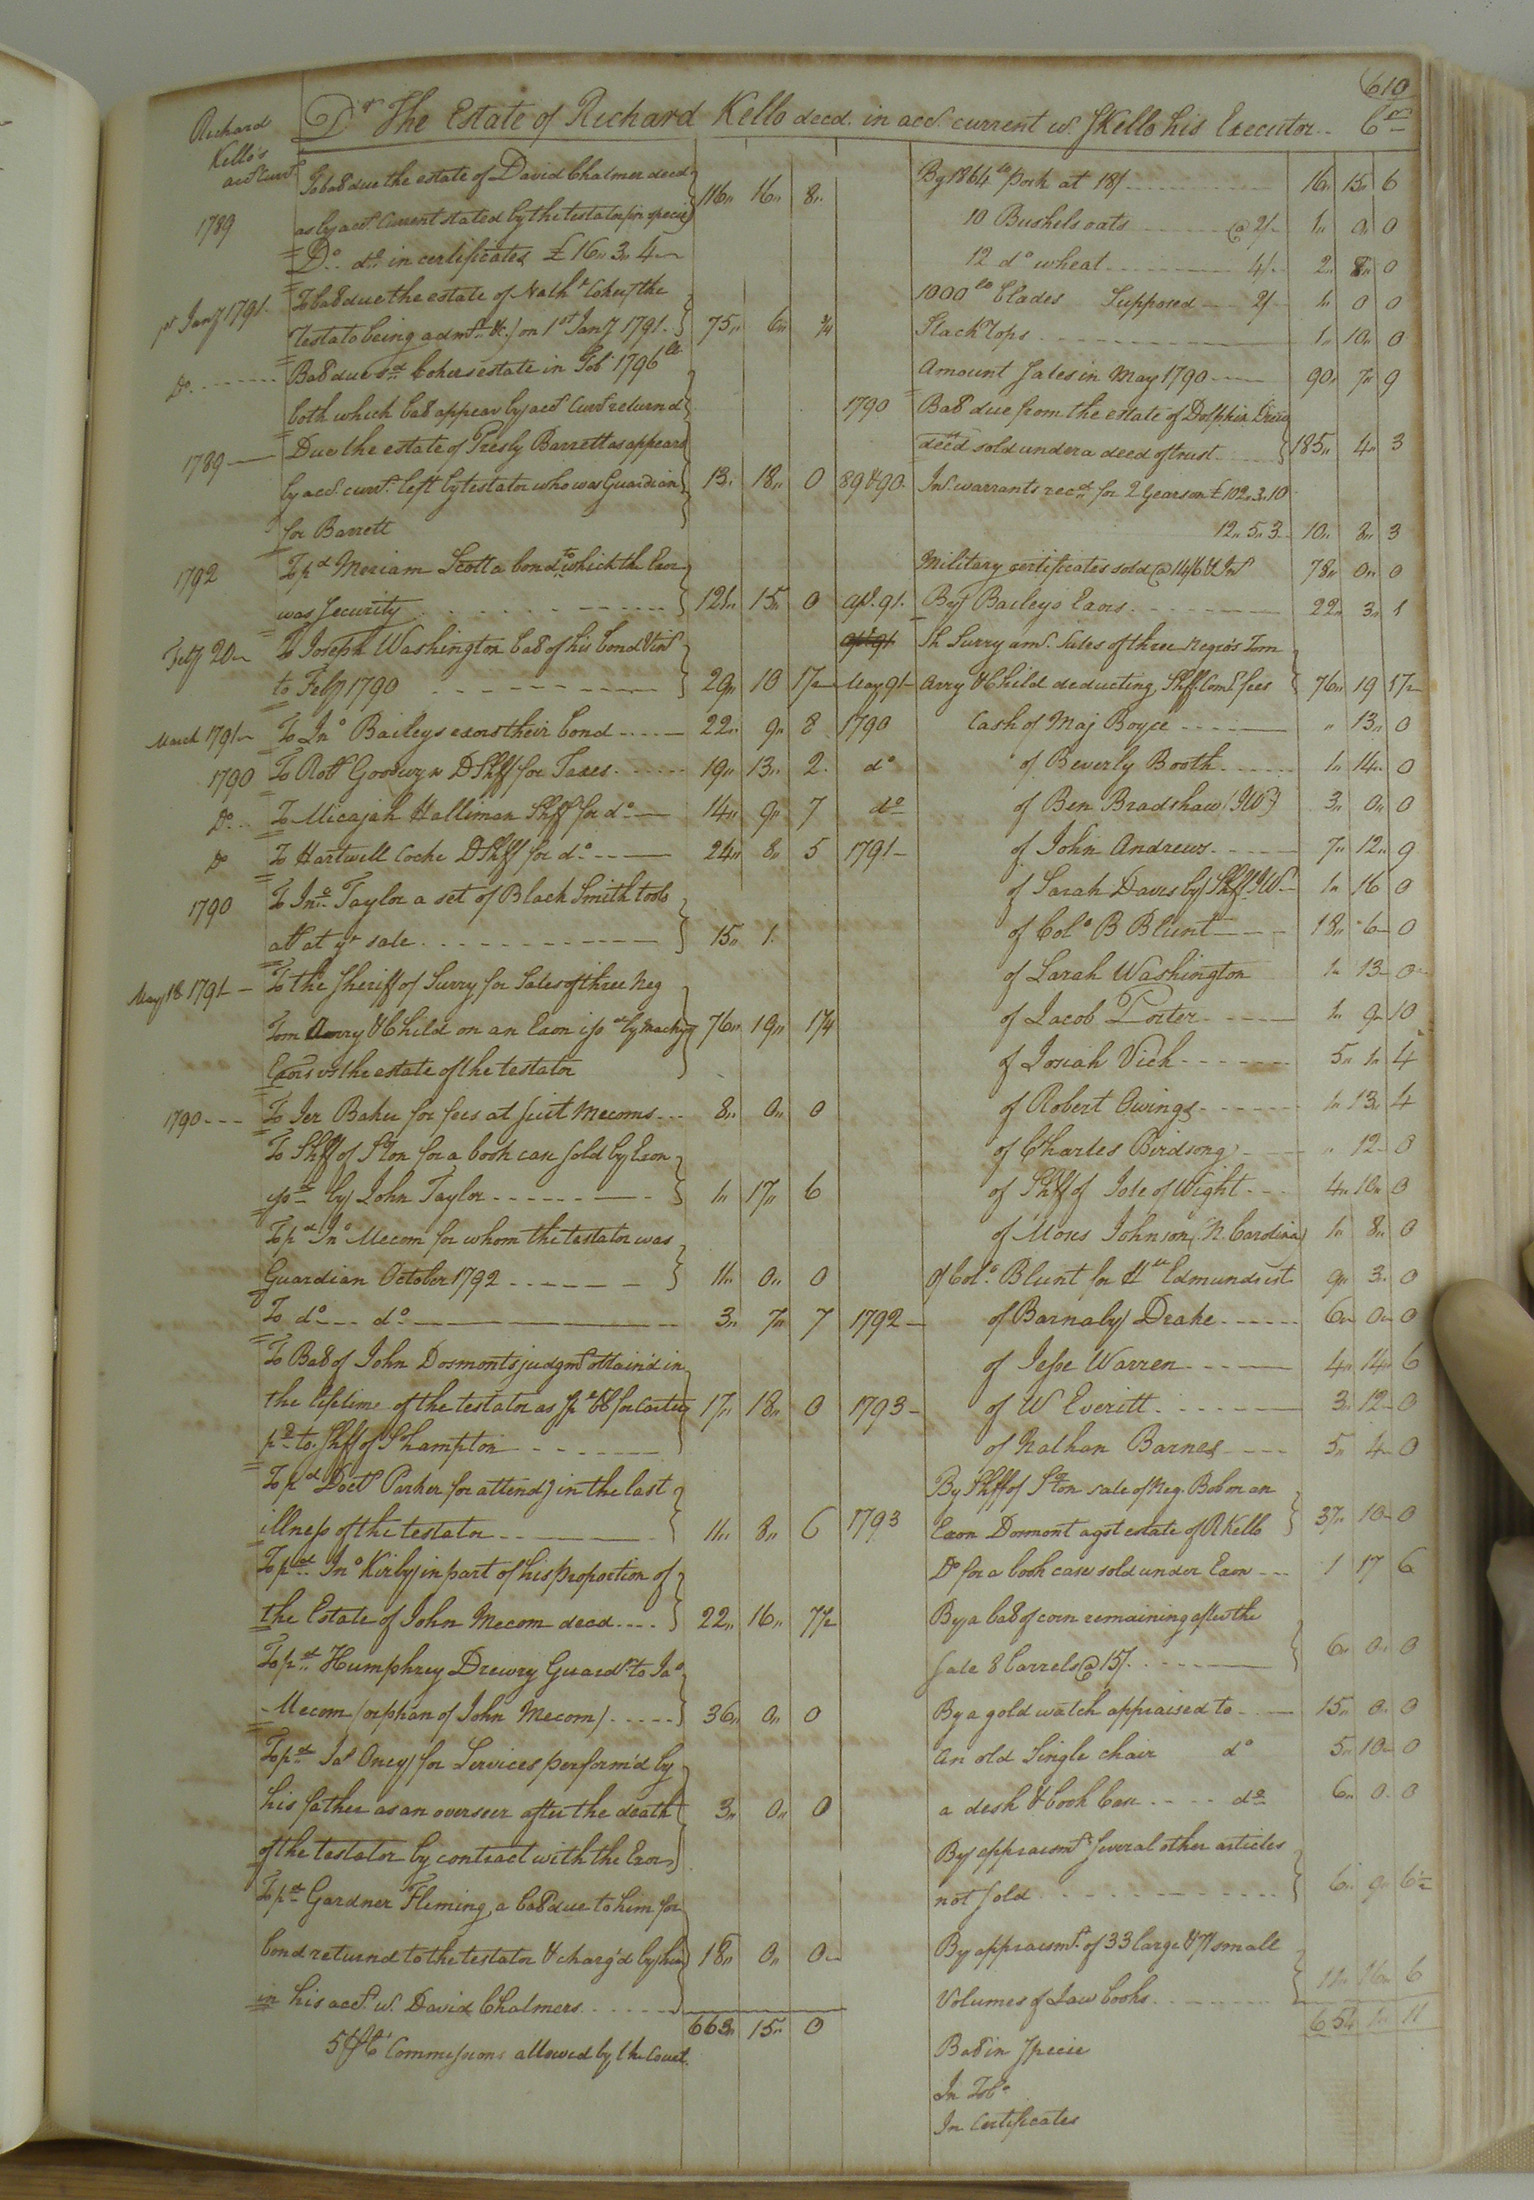 610
Richard
Kello's
acct Currt
Dr The Estate of Richard Kello decd. in acct. current w. S Kello his Executor Cr
1789 To bal due the estate of David Chalmer decd
as by acct. Current stated by the testator (in specie) 116 16 8
Do. do in certificates £16 3 4
1st Jany 1791 To bal due the estate of Nathl Coker (the
Testator being admr &c.) on 1st Jany 1791 75 6 3/4
Do Bal due sd Cokers estate in Tob 1796 lb
both which bal appear by acct Currt returnd
1789 Due the estate of Presly Barrett as appears
by acct. currt. left by testator who was Guardian 13 18 0
for Barrett
1792 To pd Meriam Scott a bond to which the Exor
was Security 121 15 0
Feby 20 To Joseph Washington bal of his bond & int
to Feby 1790 29 10 1 1/2
March 1791 To Jno Baileys exors their bond 22 9 8
1790 To Robt Goodwyn D Shff for Taxes 19 13 2
Do To Micajah Holliman Shff for do 14 9 7
Do To Hartwell Cocke D Shff for do 24 8 5
1790 To Jno Taylor a set of Black Smith tools
at yr sale 15 1
May 18 1791 To the Sheriff of Surry for Sales of three Neg
Tom Amry & Child on an Exon isd by Mackys 76 19 1 1/4
Exors vs the estate of the testator
1790 To Jer Baker for fees at suit Mecoms 8 0 0
To Shff of Ston for a book case sold by Exon
by John Taylor 1 17 6
To pd Jno Mecom for whom the testator was
Guardian October 1792 11 0 0
To do do 3 7 7
To Bal of John Dormonts judgmt obtain'd in
the lifetime of the testator as 17 18 0
pd to Shff of Shampton
To pd Doctr Parker for attendg in the last
illness of the testator 11 8 6
To pd Jno Kirby in part of his proportion of
the Estate of John Mecom decd 22 16 7 1/2
To pd Humphrey Drewry Guardn to Jas
Mecom (orphan of John Mecom) 36 0 0
To pd Jas Oney for Services perform'd by
his father as an overseer after the death 3 0 0
of the testator by contract with the Exors
To pd Gardner Fleming, a bal due to him for
bond returnd to the testator & charg'd by him 18 0 0
in his acct. w. David Chalmers
663 15 0
5 pCt Commissions allowed by the Court
By 1864 lb Pork at 18/ 16 15 6
10 Bushels oats @ 2/ 1 0 0
12 do wheat 4/ 2 8 0
1000 lb blades Supposed 2/ 1 0 0
Stack Tops 1 10 0
Amount Sales in May 1790 90 7 9
1790 Bal due from the estate of Dolphin Drew
decd sold under a deed of trust 185 4 3
89 & 90 Int. warrants recd for 2 Years on £102.3.10
12 5 3 10 8 3
Military certificates sold @ & Int 78 0 0
Apl. 91 By Baileys Exors 22 3 1
Sh Surry amt. Sales of three Negro's Tom
May 91 Amry & Child deducting Shff Coms & fees 76 19 1 1/2
1790 Cash of Maj Boyce 13 0
do of Beverly Booth 1 14 0
do of Ben Bradshaw (IW) 3 0 0
1791 of John Andrews 7 12 9
of Sarah Davis by Shff IW 1 16 0
of Colo B Blunt 18 6 0
of Sarah Washington 1 13 0
of Jacob Porter 1 9 10
of Josiah Vick 5 1 4
of Robert Owings 1 13 4
of Charles Birdsong 12 0
of Shff of Isle of Wight 4 10 0
of Moses Johnson (N. Carolina) 1 8 0
Of Colo. Blunt for Hth Edmunds est 9 3 0
1792 of Barnaby Drake 6 0 0
of Jesse Warren 4 14 6
1793 of W Everitt 3 12 0
of Nathan Barnes 5 4 0
By Shff of Ston sale of Neg. Bob on an
1793 Exon Dormont agst estate of R Kello 37 10 0
Do for a book case sold under Exon 1 17 6
By a bal of corn remaining after the
Sale 8 barrels @ 15/ 6 0 0
By a gold watch appraised to 15 0 0
An old Single chair do 5 10 0
a desk & book Case do 6 0 0
By appraismt. Several other articles
not sold 6 9 6 1/2
By appraismt. of 33 large & 71 small
Volumes of Law books 11 16 6
654 1 11
Bal in Specie
In Tobo
In Certificates